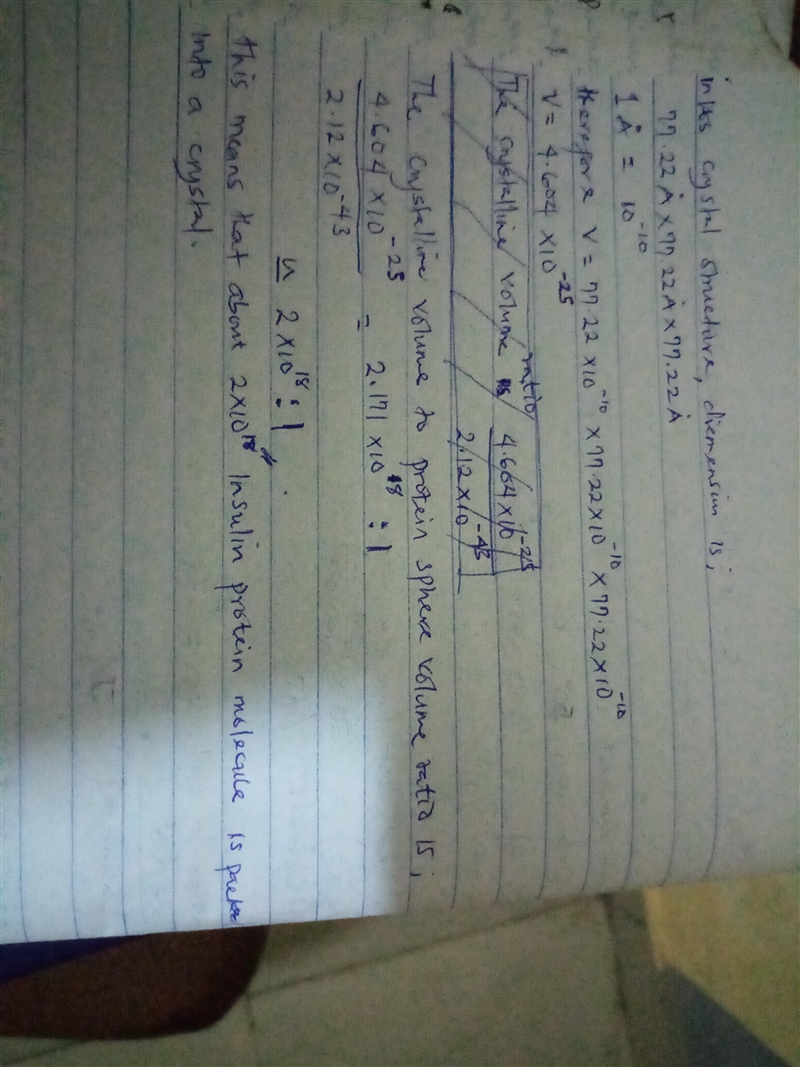 in its crystal structure, diemension is,
77.22 Å x 77.22 Å x 77.22 Å
1 Å = 10⁻¹⁰
therefore V = 77.22 x10⁻¹⁰ x 77.22x10⁻¹⁰ x 77.22x10⁻¹⁰
V = 4.604 x10⁻²⁵
The crystalline volume ratio 4.604x10⁻²⁵
2.12x10⁻⁴³
The crystalline volume to protein sphere volume ratio is,
4.604 x10⁻²⁵ = 2.171 x10¹⁸ : 1
2.12x10⁻⁴³
≃ 2 x10¹⁸ : 1.
this means that about 2x10¹⁸ Insulin protein molecule is
into a crystal.